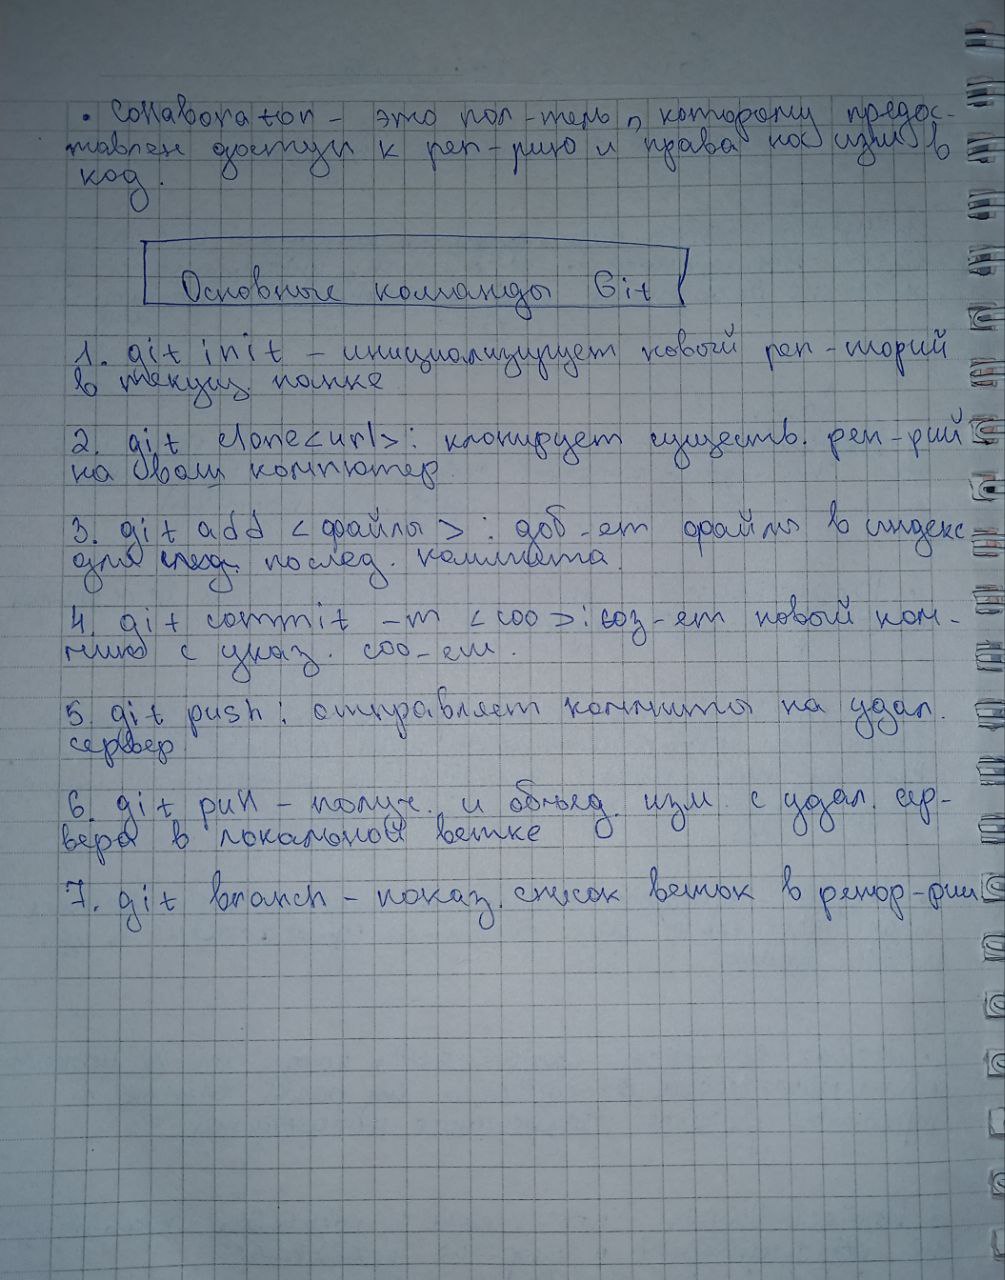 • Collaborator - это пол-тель, которому предос-
тавлен доступ к реп-рию и права на изм в
код.
Основные команды Git
1. git init - инициализирует новый реп-торий
в текущ. папке
2. git clone <url>: клонирует существ. реп-рий
на ваш компютер.
3. git add <файлы>: доб-ет файлы в индекс
для след. послед. коммита.
4. git commit -m <соо>: соз-ет новый ком-
мит с указ. соо-ем.
5. git push: отправляет коммиты на удал.
сервер
6. git pull - получ. и объед. изм. с удал. сер-
вера в локальной ветке
7. git branch - показ. список веток в репор-рии